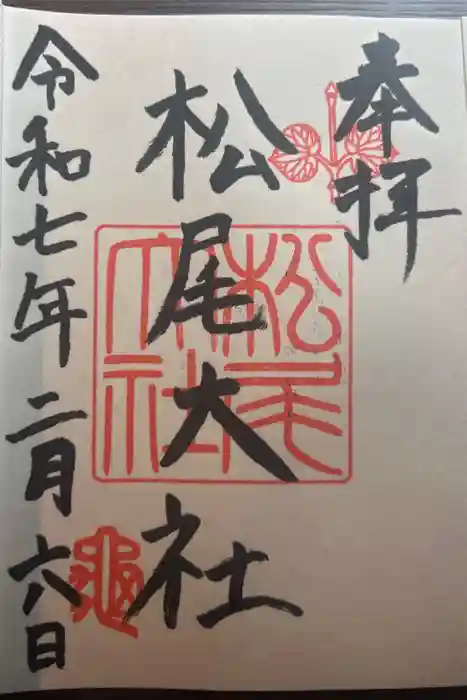 奉拝
松尾大社
松尾大社
亀
令和七年二月六日